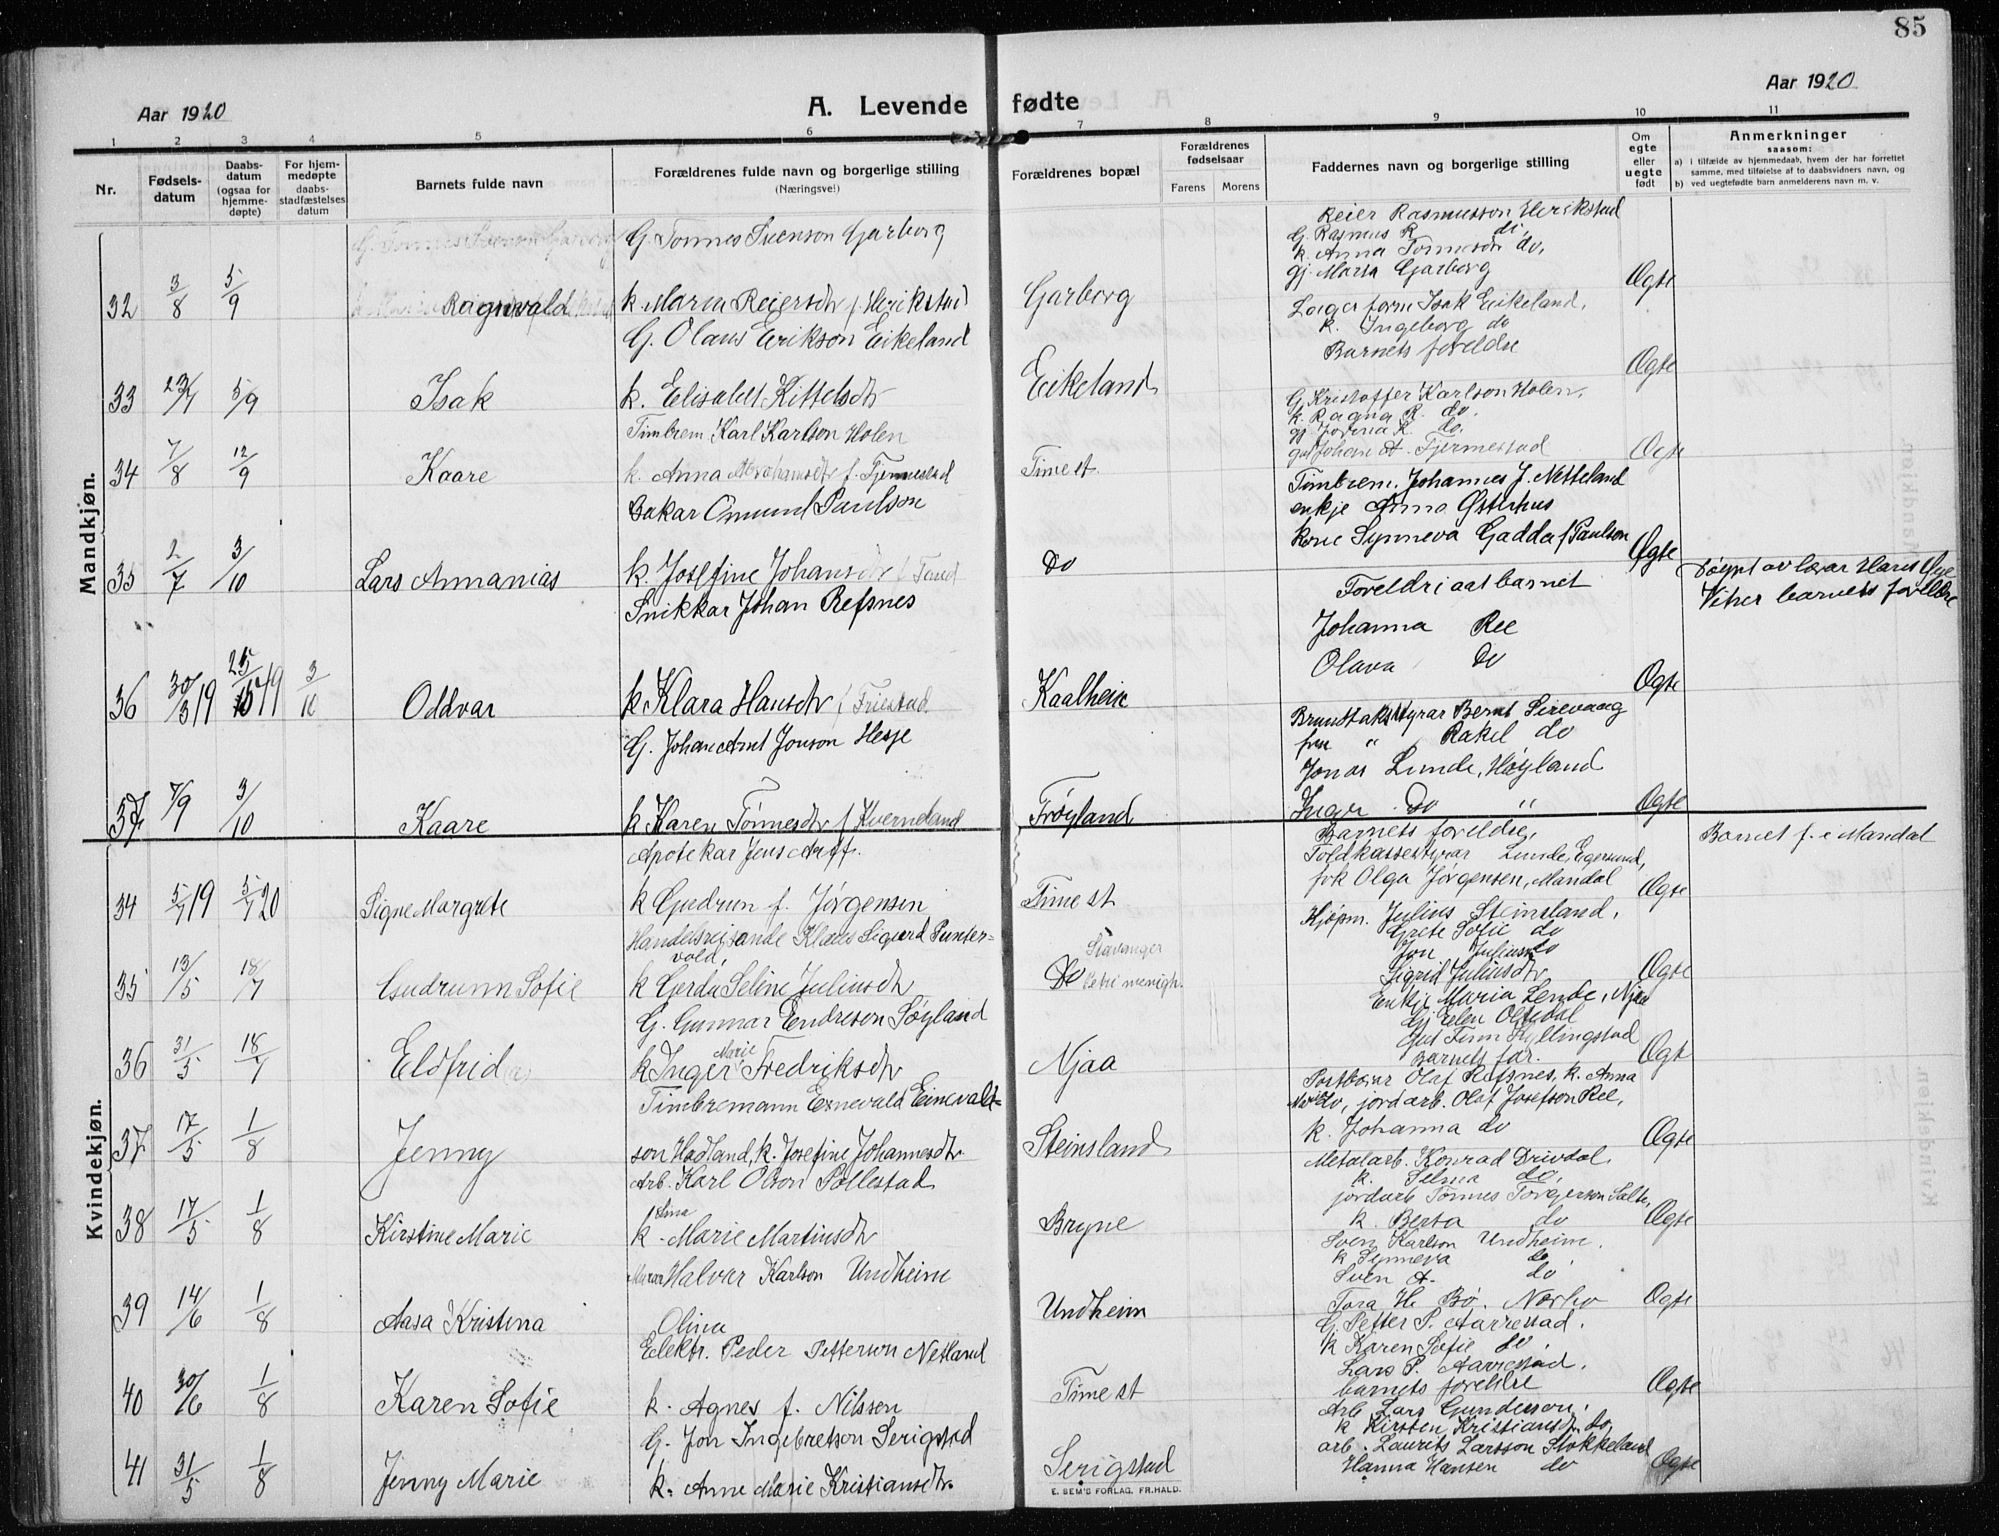 85
Aar 1920
A. Levende fødte
Aar 1920
1 2 3 4 5 6 7 8 9 10 11
Nr.
Fødselsdatum
Daabsdatum (ogsaa for hjemmedøpte)
For hjemmedøpte daabsstadfæstelses datum
Barnets fulde navn
Forældrenes fulde navn og borgerlige stilling (Næringsvei)
Forældrenes bopæl
Forældrenes fødselsaar
Farens
Morens
Faddernes navn og borgerlige stilling
Om egte eller uegte født
Anmerkninger saasom:
a) i tilfælde av hjemmedaab, hvem der har forrettet samme, med tilføielse af to daabsvidners navn, og
b) ved uegtefødte barn anmelderens navn m. v.
Mandkjøn.
32 3/8 5/9 Ragnvald
G. Tønnes Svenson Garborg
k. Maria Reiersdtr f. Herikstad
Garborg
Reier Rasmusson Herikstad
G. Rasmus R. do.
k. Anna Tønnesdtr do.
gj. Marta Garborg
Øgte
33 23/7 5/9 Isak
G. Olaus Erikson Eikeland
k. Elisabet Kittelsdtr
Eikeland
Isak Eikeland.
k. Ingeborg do
Barnets foreldre
Øgte
34 7/8 12/9 Kaare
Timbrem Karl Karlson Holen
k. Anna Abrahamsdtr f. Tjermestad
Time st.
G. Kristoffer Karlson Holen.
k. Ragna R. do.
gj. K. do.
gut Johan A. Tjermestad
Øgte
35 2/7 3/10 Lars Annanias
Bakar Omund Paulson
k. Josefine Johansdtr f. Tand
Do
Timbrem. Johannes J. Netteland
enkje Anna Østerhus
Kone Synneva Gadda f. Paulson
Øgte
36 30/3 19 25/5 19 3/10 Oddvar
Snikkar Johan Refsnes
k Klara Hansdtr f. Friestad
Kaalheim
Foreldri aat barnet
Johanna Ree
Olava Do
Øgte
Døypt av lærar Hans Øye
Vitner barnets foreldre
37 7/9 3/10 Kaare
G. Johan Arnt Jonson Hesje
k Karen Tønnesdtr f Kverneland
Frøyland
Brunstakstyrar Bernt Sirevaag
fru " Rakel do
Jonas Lunde, Høyland
Inger Do "
Øgte
Kvindekjøn.
34 5/7 19 5/7 20 Signe Margrete
Apotekar Jens
k Gudrun f. Jørgensen
Time st
Barnets foreldre,
Toldkassestyrar Lunde, Egersund,
frk Olga Jørgensen, Mandal
Øgte
Barnet f. i Mandal
35 13/5 18/7 Gudrunn Sofie
Handelsreisande Klaus Sigurd Puntervold,
k Gerda Seline Juliusdtr
Do Stavanger Petri menigh.
Kjøpm. Julius Steinsland,
Grete Sofie do
Jon Juliusson do
Sigrid Juliusdtr
Øgte
36 31/5 18/7 Eldfrid (a)
G. Gunnar Endreson Søyland
k Inger Marie Fredriksdtr
Njaa
Enkje Maria Lende, Njaa
Gj Elen Oltedal
Gut Finn Kyllingstad
Barnets far.
Øgt
37 17/5 1/8 Jenny
Timbremann Enevald Einevaldson Hadland, k. Josefine Johannesdtr
Steinsland
Postbærar Olaf Refsnes, k. Anna
do, jordarb. Olaf Josefson Ree,
k. Johanna do
Øgte
38 17/5 1/8 Kirstine Marie
Arb. Karl Olson Pollestad
k. Stina Marie Martinsdtr
Bryne
Metalarb. Konrad Drivdal.
k. Selma do.
jordarb Tønnes Torgerson Salte,
k. Berta do
Øgte
39 14/6 1/8 Aasa Kristina
Murar Halvar Karlson Undheim
Olina
Undheim
Sven Karlson Undheim.
k Synneva do.
Sven A. do
Tora H. Bø. Nærbø
Øgte
40 30/6 1/8 Karen Sofie
Elektr. Peder Petterson Netland
k. Agnes f. Nilssen
Time st
G. Petter P. Aarrestad.
k Karen Sofie do.
Lars P. Aarrestad.
barnets foreldre
Øgte
41 31/5 1/8 Jenny Marie
G. Jon Ingebretson Serigstad
k. Anne Marie Kristiansdtr.
Serigstad
Arb Lars Gunderson,
k Kirsten Kristiansdtr do,
arb. Laurits Larsson Stokkeland
Hanna Hansen do
Øgte
E. SEM'S FORLAG, FR.HALD.